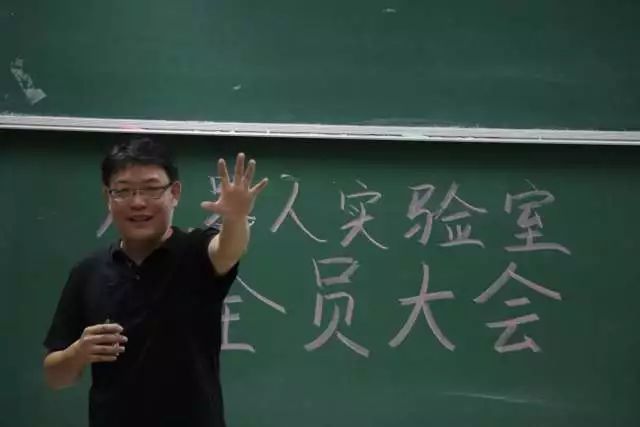 人实验室
全员大会